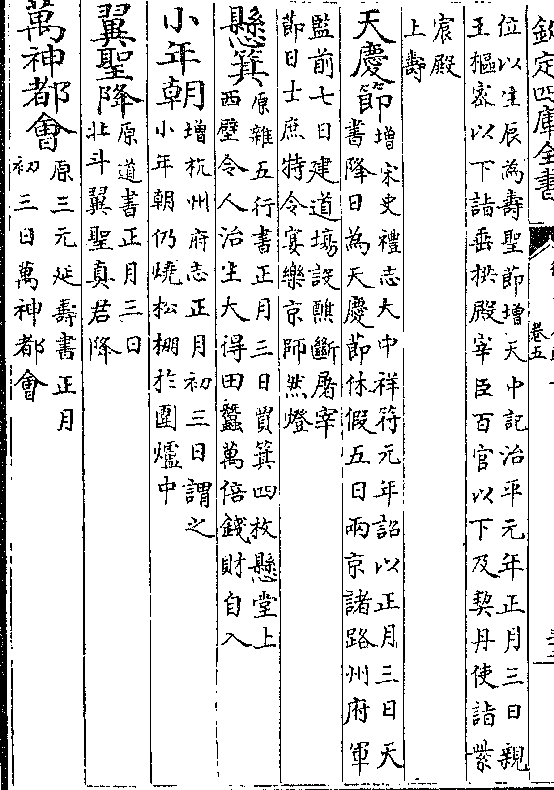 欽定四庫全書
卷五
位以生辰為壽聖節增天中記治平元年正月三日親
王樞密以下詣垂拱殿宰臣百官以下及契丹使詣紫
宸殿
上壽
天慶節
增宋史禮志大中祥符元年詔以正月三日天
書降日為天慶節休假五日兩京諸路州府軍
監前七日建道場設醮斷屠宰
節日士庶特令宴樂京師然燈
懸箕
原雜五行書正月三日買箕四枚懸堂上
西壁令人治生大得田蠶萬倍錢財自入
小年朝
增杭州府志正月初三日謂之
小年朝仍燒松棚於圍爐中
翼聖降
原道書正月三日
北斗翼聖真君降
萬神都會
原三元延壽書正月
初三日萬神都會